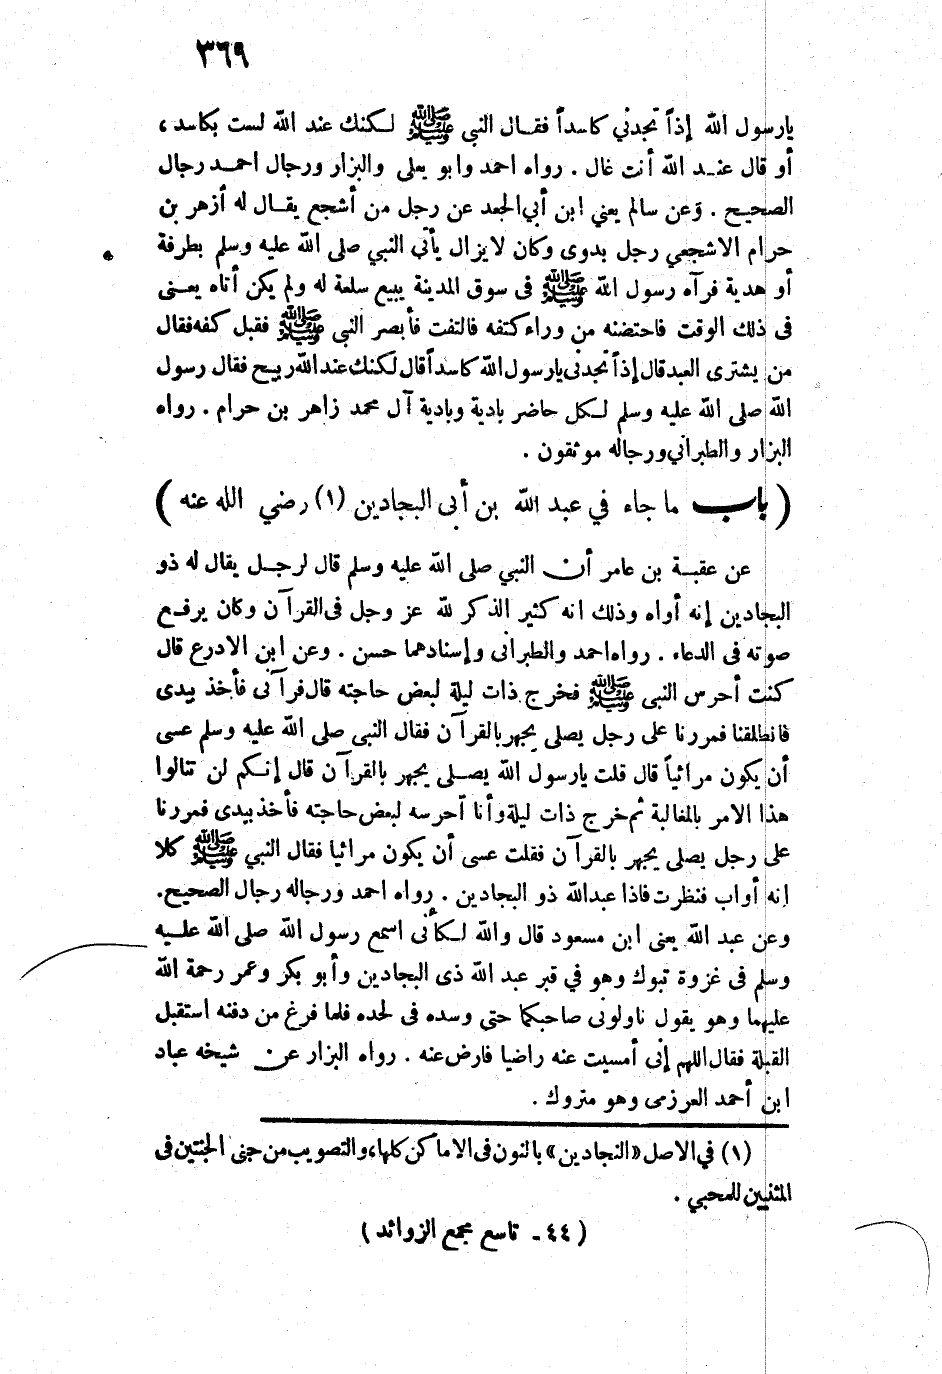 ٣٦٩
يارسول الله إذاً تجدني كاسداً فقال النبي ﷺ لكنك عند الله لست بكاسد ،
أو قال عند الله أنت غال . رواه احمد وابو يعلى والبزار ورجال احمد رجال
الصحيح . وعن سالم يعني ابن أبي الجعد عن رجل من أشجع يقال له أزهر بن
حرام الاشجعي رجل بدوى وكان لايزال يأتي النبي صلى الله عليه وسلم بطرفة
أو هدية فرآه رسول الله ﷺ فى سوق المدينة يبيع سلعة له ولم يكن أتاه يعنى
فى ذلك الوقت فاحتضنه من وراء كتفه فالتفت فأبصر النبي ﷺ فقبل كفه فقال
من يشترى العبد قال إذاً تجدنى يارسول الله كاسداً قال لكنك عند الله ربيح فقال رسول
الله صلى الله عليه وسلم لكل حاضر بادية وبادية آل محمد زاهر بن حرام . رواه
البزار والطبراني ورجاله موثقون .
( باب ما جاء في عبد الله بن أبى البجادين (١) رضي الله عنه )
عن عقبة بن عامر أن النبي صلى الله عليه وسلم قال لرجل يقال له ذو
البجادين إنه أواه وذلك انه كثير الذكر لله عز وجل فى القرآن وكان يرفع
صوته فى الدعاء . رواه احمد والطبرانى وإسنادهما حسن . وعن ابن الادرع قال
كنت أحرس النبي ﷺ فخرج ذات ليلة لبعض حاجته قال فرآنى فأخذ بيدى
فانطلقنا فمررنا على رجل يصلى يجهر بالقرآن فقال النبى صلى الله عليه وسلم عسى
أن يكون مرائياً قال قلت يارسول الله يصلى يجهر بالقرآن قال إنكم لن تنالوا
هذا الامر بالمغالبة ثم خرج ذات ليلة وأنا أحرسه لبعض حاجته فأخذ بيدى فمررنا
على رجل يصلى يجهر بالقرآن فقلت عسى أن يكون مرائيا فقال النبي ﷺ كلا
انه أواب فنظرت فاذا عبدالله ذو البجادين . رواه احمد ورجاله رجال الصحيح.
وعن عبد الله يعنى ابن مسعود قال والله لكأنى اسمع رسول الله صلى الله عليه
وسلم فى غزوة تبوك وهو في قبر عبد الله ذى البجادين وأبو بكر وعمر رحمة الله
عليهما وهو يقول ناولونى صاحبكما حتى وسده فى لحده فلما فرغ من دفنه استقبل
القبلة فقال اللهم إنى أمسيت عنه راضيا فارض عنه . رواه البزار عن شيخه عباد
ابن أحمد العرزمى وهو متروك .
(١) في الاصل «النجادين» بالنون فى الاماكن كلها، والتصويب من جنى الجنتين فى
المثنيين للمحبي .
( ٤٤ - تاسع مجمع الزوائد )